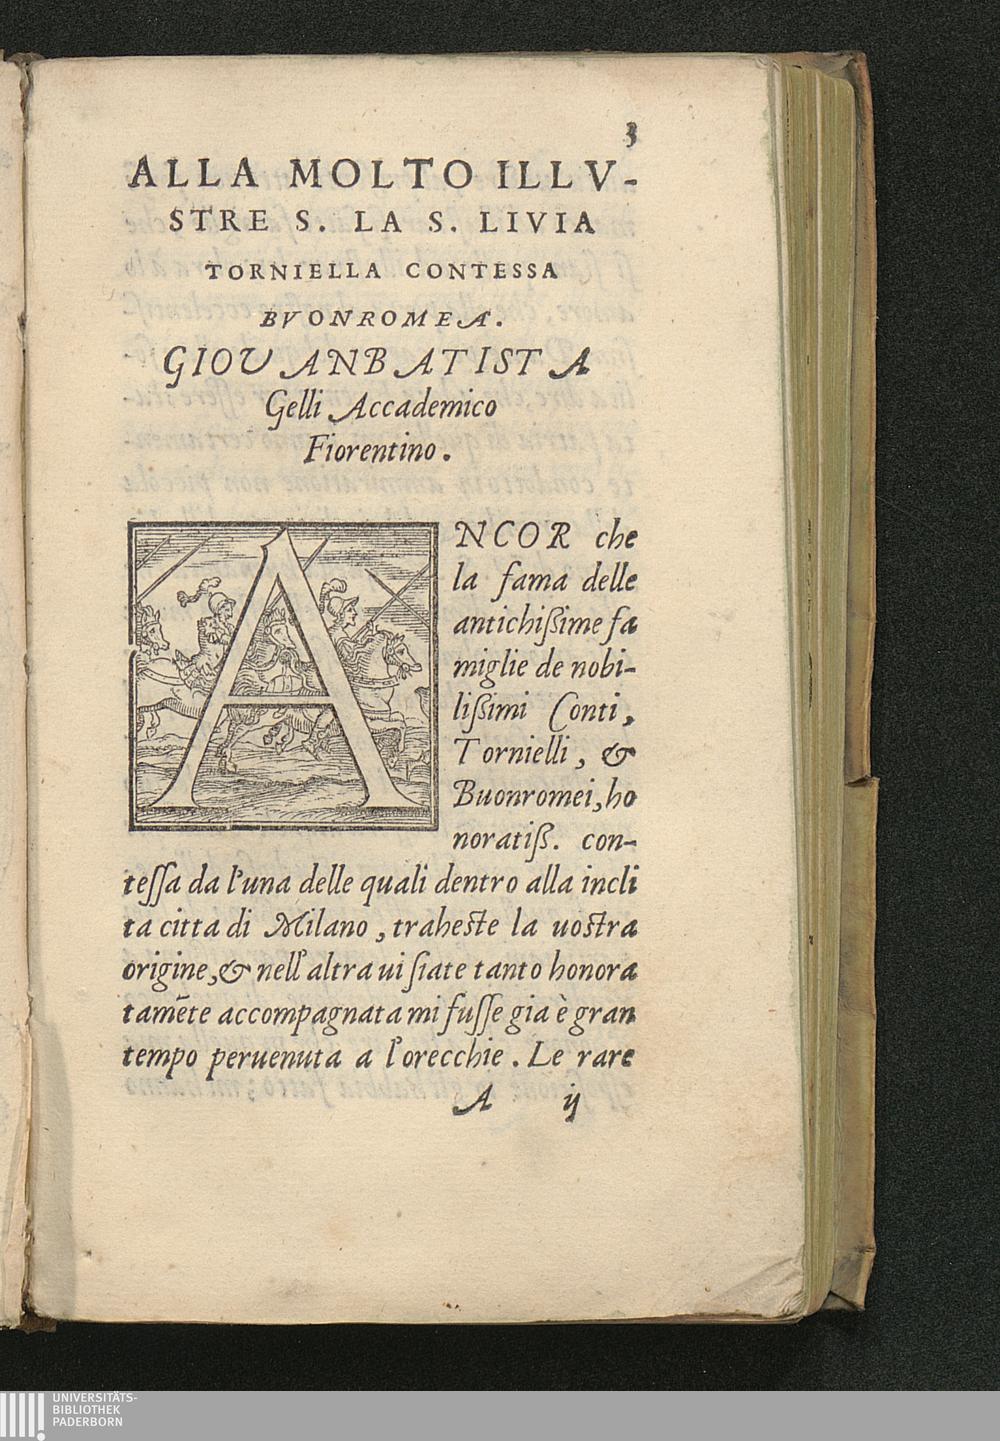 3
ALLA MOLTO ILLV-
STRE S. LA S. LIVIA
TORNIELLA CONTESSA
BVONROMEA.
GIOVANBATISTA
Gelli Accademico
Fiorentino.
ANCOR che
la fama delle
antichißime fa
miglie de nobi-
lißimi Conti,
Tornielli, &
Buonromei, ho
noratiß. con-
teſſa da l'una delle quali dentro alla incli
ta citta di Milano, traheſte la uoſtra
origine, & nell'altra ui ſiate tanto honora
tamēte accompagnata mi fuſſe gia è gran
tempo peruenuta a l'orecchie. Le rare
A ij
UNIVERSITÄTS-
BIBLIOTHEK
PADERBORN